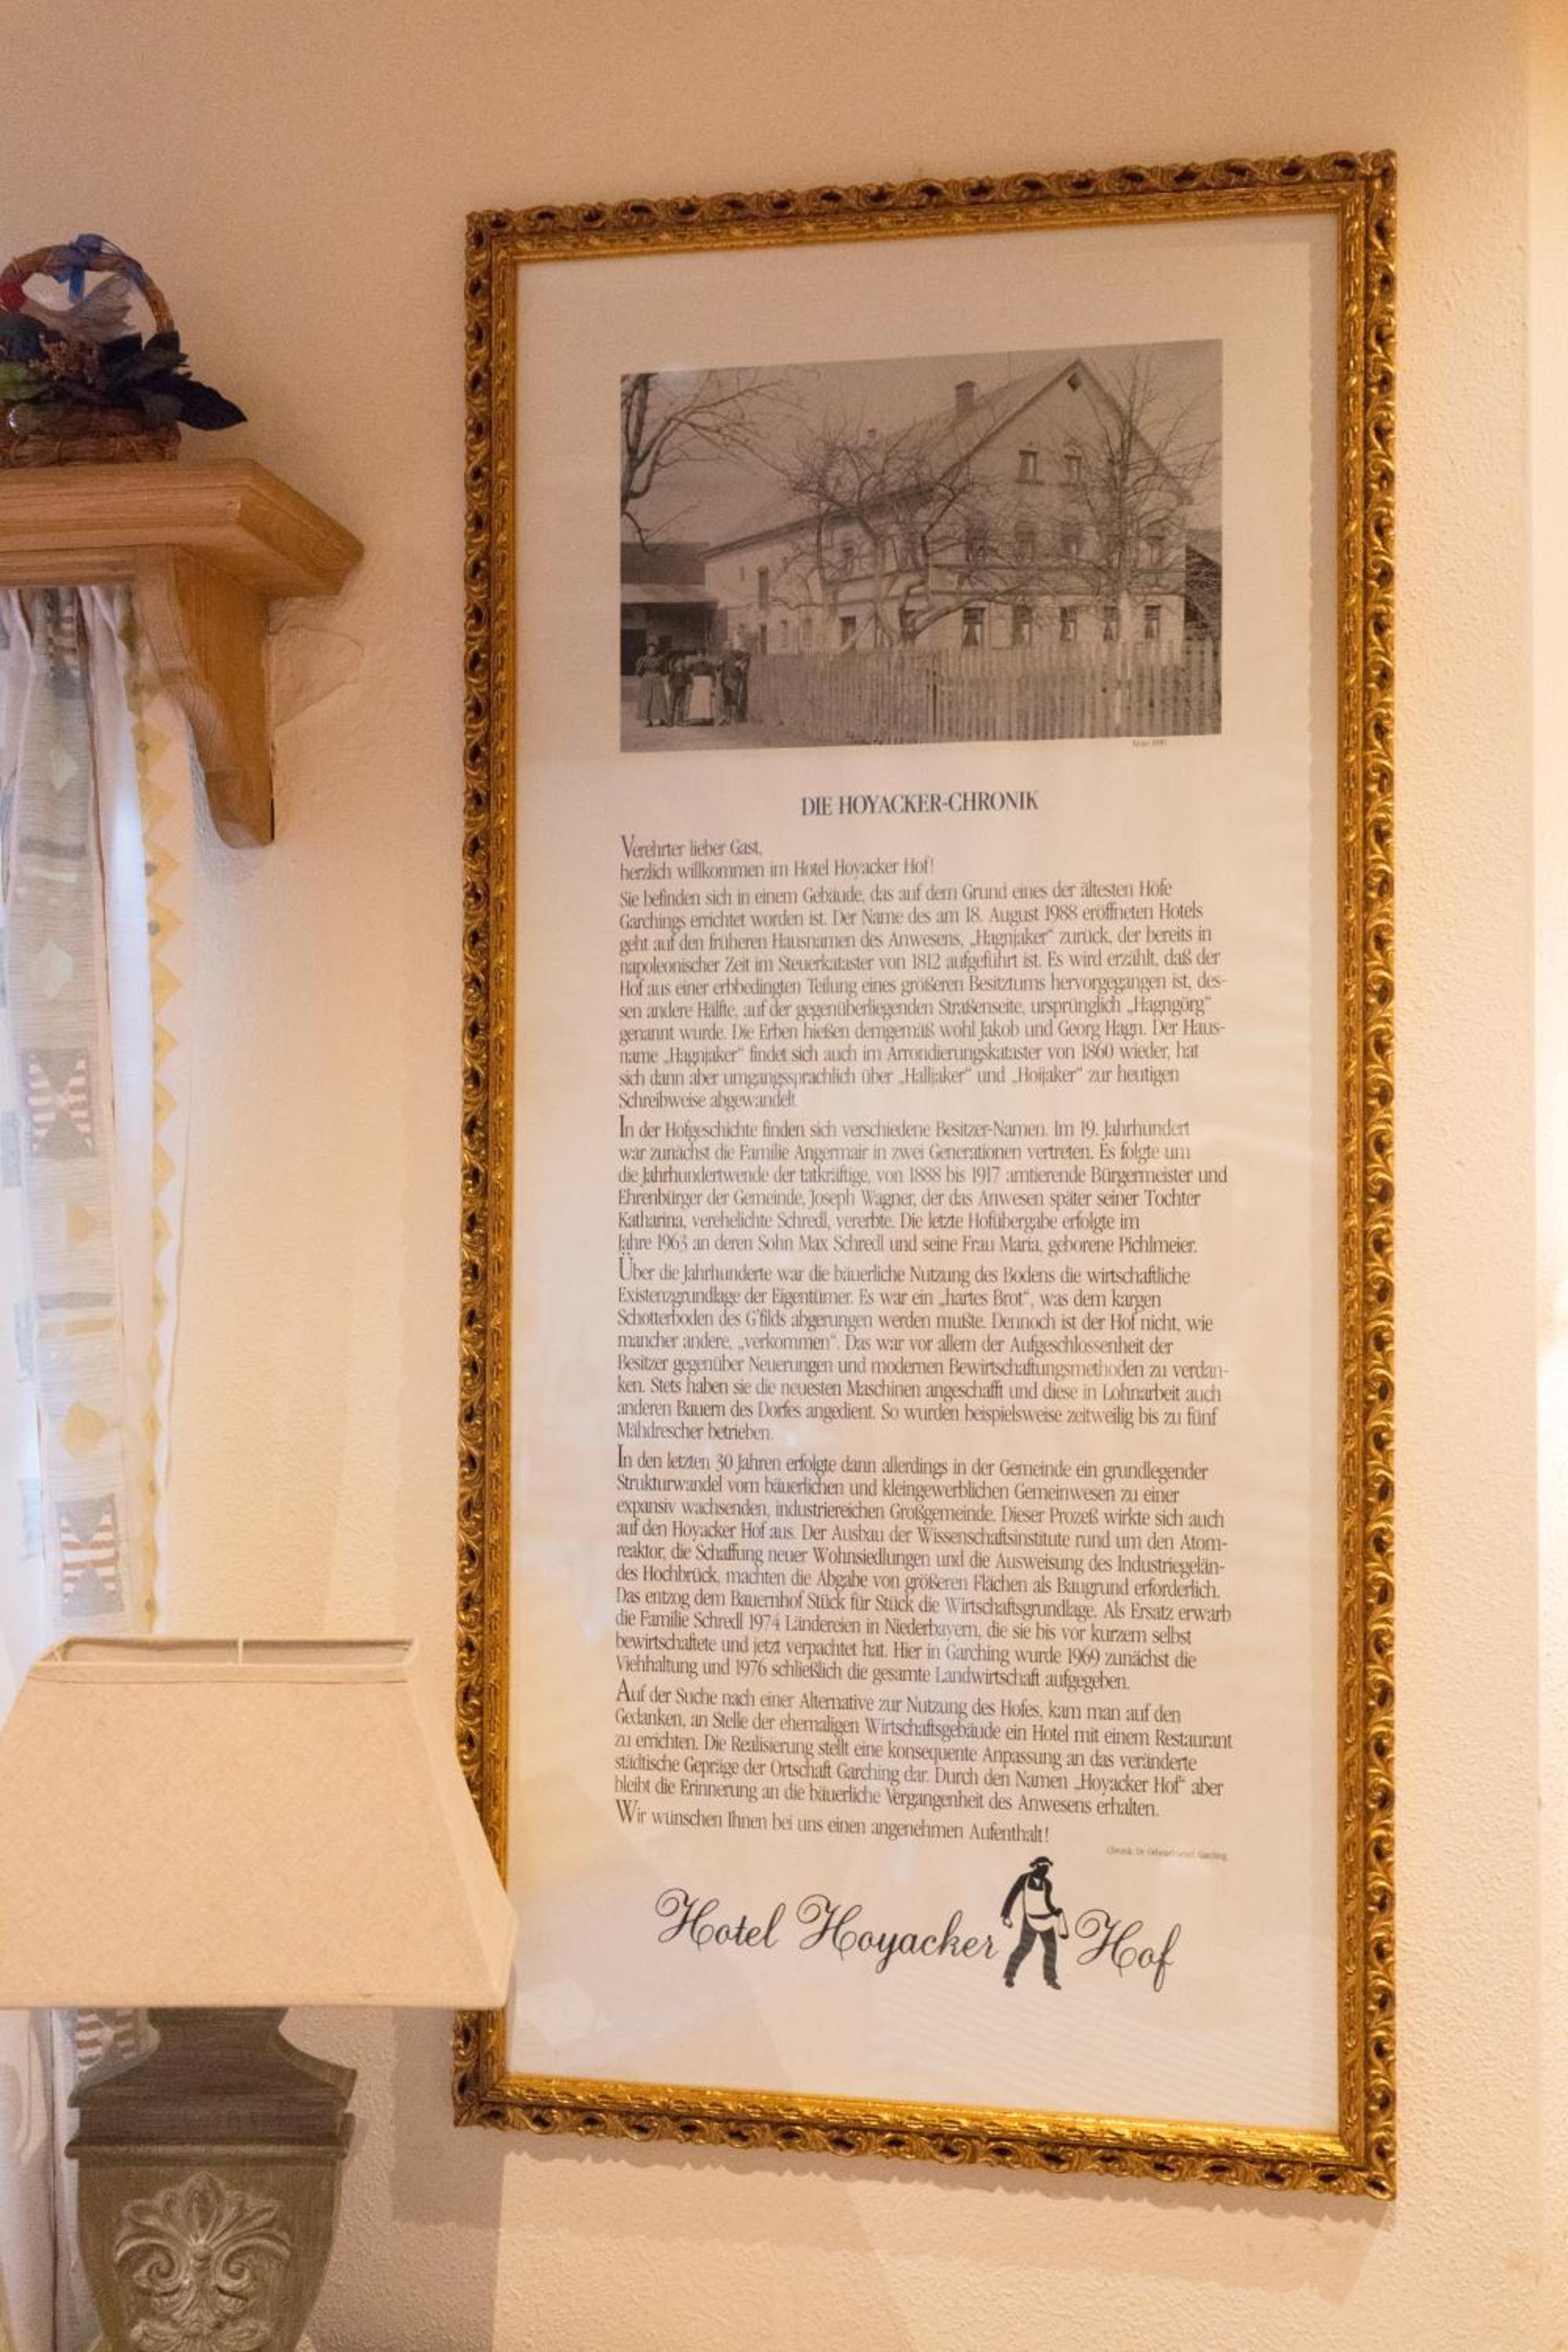 DIE HOYACKER-CHRONIK
Verehrter lieber Gast,
herzlich willkommen im Hotel Hoyacker Hof!
Sie befinden sich in einem Gebäude, das auf dem Grund eines der ältesten Höfe
Garchings errichtet worden ist. Der Name des am 18. August 1988 eröffneten Hotels
geht auf den früheren Hausnamen des Anwesens, „Hagnjaker“ zurück, der bereits in
napoleonischer Zeit im Steuerkataster von 1812 aufgeführt ist. Es wird erzählt, daß der
Hof aus einer erbbedingten Teilung eines größeren Besitztums hervorgegangen ist, des-
sen andere Hälfte, auf der gegenüberliegenden Straßenseite, ursprünglich „Hagngörg“
genannt wurde. Die Erben hießen demgemäß wohl Jakob und Georg Hagn. Der Haus-
name „Hagnjaker“ findet sich auch im Arrondierungskataster von 1860 wieder, hat
sich dann aber umgangssprachlich über „Halljaker“ und „Hoijaker“ zur heutigen
Schreibweise abgewandelt.
In der Hofgeschichte finden sich verschiedene Besitzer-Namen. Im 19. Jahrhundert
war zunächst die Familie Angermair in zwei Generationen vertreten. Es folgte um
die Jahrhundertwende der tatkräftige, von 1888 bis 1917 amtierende Bürgermeister und
Ehrenbürger der Gemeinde, Joseph Wagner, der das Anwesen später seiner Tochter
Katharina, verehelichte Schredl, vererbte. Die letzte Hofübergabe erfolgte im
Jahre 1963 an deren Sohn Max Schredl und seine Frau Maria, geborene Pichlmeier.
Über die Jahrhunderte war die bäuerliche Nutzung des Bodens die wirtschaftliche
Existenzgrundlage der Eigentümer. Es war ein „hartes Brot“, was dem kargen
Schotterboden des G'filds abgerungen werden mußte. Dennoch ist der Hof nicht, wie
mancher andere, „verkommen“. Das war vor allem der Aufgeschlossenheit der
Besitzer gegenüber Neuerungen und modernen Bewirtschaftungsmethoden zu verdan-
ken. Stets haben sie die neuesten Maschinen angeschafft und diese in Lohnarbeit auch
anderen Bauern des Dorfes angedient. So wurden beispielsweise zeitweilig bis zu fünf
Mähdrescher betrieben.
In den letzten 30 Jahren erfolgte dann allerdings in der Gemeinde ein grundlegender
Strukturwandel vom bäuerlichen und kleingewerblichen Gemeinwesen zu einer
expansiv wachsenden, industriereichen Großgemeinde. Dieser Prozeß wirkte sich auch
auf den Hoyacker Hof aus. Der Ausbau der Wissenschaftsinstitute rund um den Atom-
reaktor, die Schaffung neuer Wohnsiedlungen und die Ausweisung des Industriegelän-
des Hochbrück, machten die Abgabe von größeren Flächen als Baugrund erforderlich.
Das entzog dem Bauernhof Stück für Stück die Wirtschaftsgrundlage. Als Ersatz erwarb
die Familie Schredl 1974 Ländereien in Niederbayern, die sie bis vor kurzem selbst
bewirtschaftete und jetzt verpachtet hat. Hier in Garching wurde 1969 zunächst die
Viehhaltung und 1976 schließlich die gesamte Landwirtschaft aufgegeben.
Auf der Suche nach einer Alternative zur Nutzung des Hofes, kam man auf den
Gedanken, an Stelle der ehemaligen Wirtschaftsgebäude ein Hotel mit einem Restaurant
zu errichten. Die Realisierung stellt eine konsequente Anpassung an das veränderte
städtische Gepräge der Ortschaft Garching dar. Durch den Namen „Hoyacker Hof“ aber
bleibt die Erinnerung an die bäuerliche Vergangenheit des Anwesens erhalten.
Wir wünschen Ihnen bei uns einen angenehmen Aufenthalt!
Chronik: Dr. Garching
Hotel Hoyacker Hof